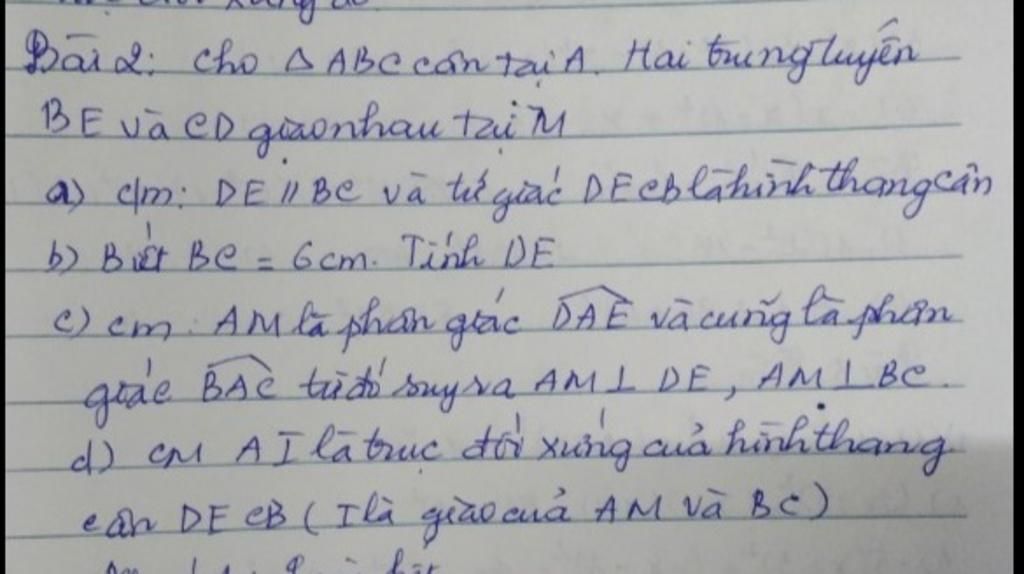 Bài 2: Cho △ ABC cân tại A. Hai trung tuyến
BE và CD giao nhau tại M
a) c/m: DE // BC và tứ giác DECB là hình thang cân
b) Biết BC = 6 cm. Tính DE
c) cm: AM là phân giác DAE và cũng là phân
giác BAC từ đó suy ra AM ⊥ DE, AM ⊥ BC.
d) CM AI là trục đối xứng của hình thang
cân DECB (I là giao của AM và BC)